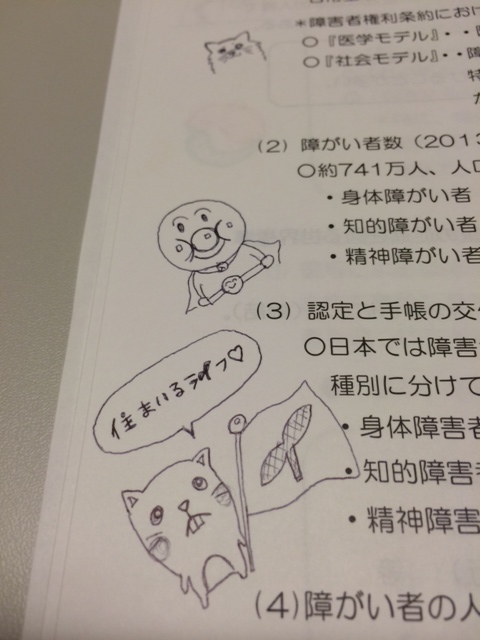 *障害者権利条約にお
○『医学モデル』・・
○『社会モデル』・・障
特
(2) 障がい者数(2013
○約741万人、人口
・身体障がい者
・知的障がい者
・精神障がい者
(3) 認定と手帳の交
○日本では障害
種別に分けて
・身体障害者
・知的障害者
・精神障害
(4)障がい者の人
住まいるラ フ♡